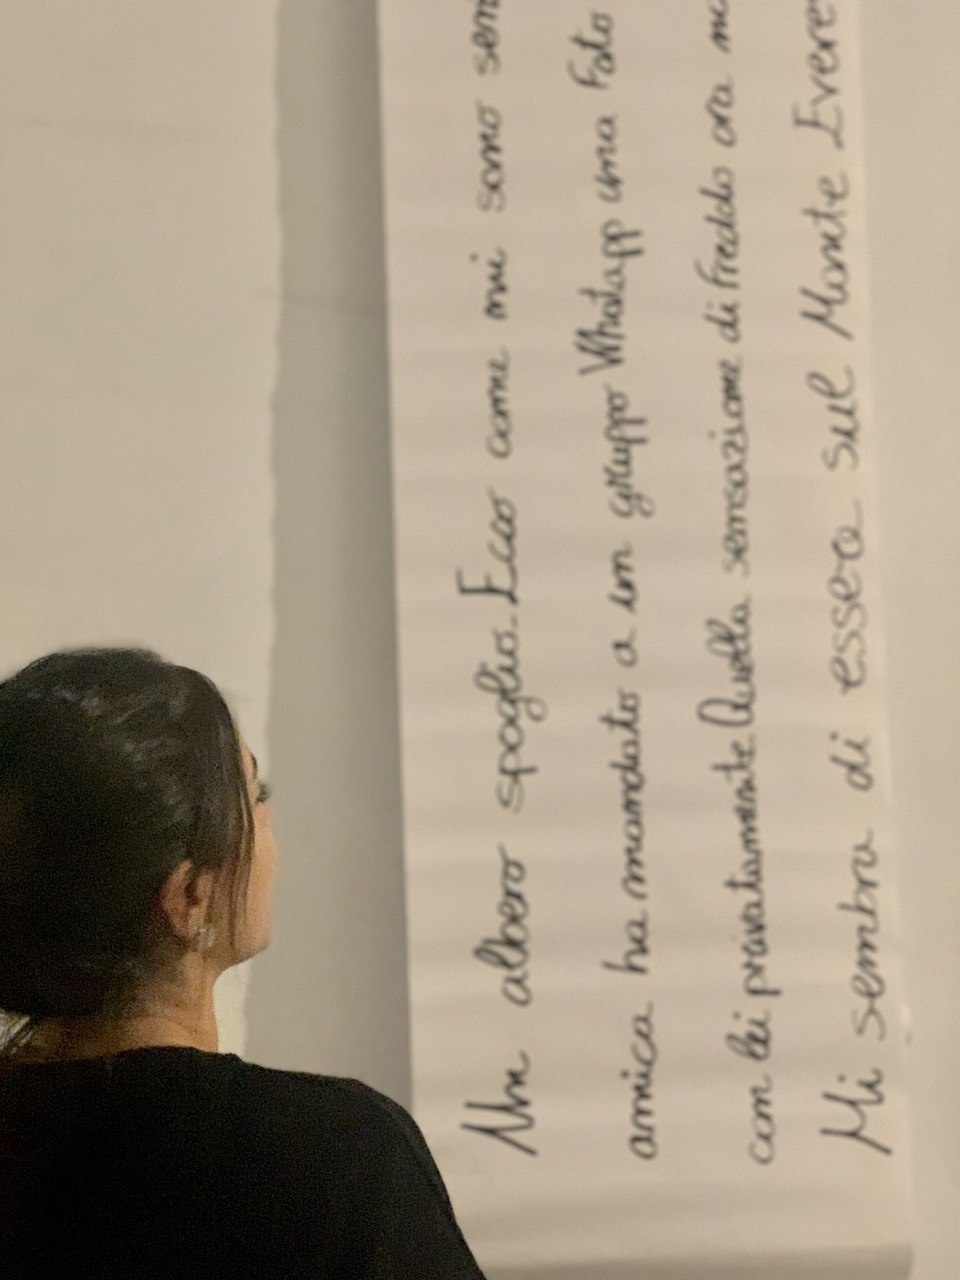 Un albero spoglio. Ecco come mi sono sen
amica ha mandato a un gruppo Whatapp una foto
con lei privatamente Quella sensazione di freddo ora mi
Mi sembra di essere sul Monte Evere